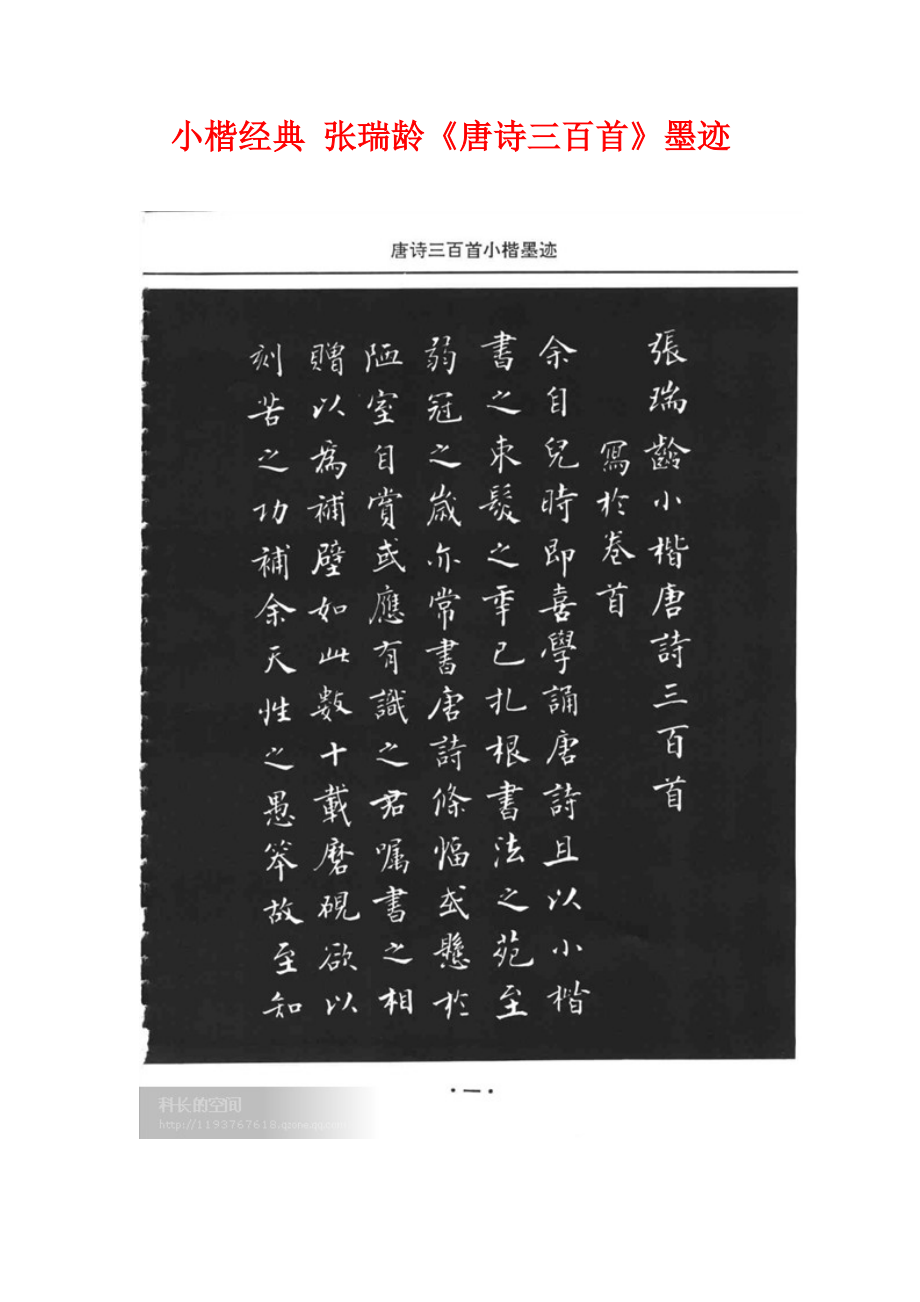 小楷经典 张瑞龄《唐诗三百首》墨迹
唐诗三百首小楷墨迹
張瑞齡小楷唐詩三百首
寫於卷首
余自兒時即喜學誦唐詩且以小楷
書之束髮之年已扎根書法之苑至
弱冠之歲亦常書唐詩條幅或懸於
陋室自賞或應有識之君嘱書之相
贈以為補壁如此數十載磨硯欲以
刻苦之功補余天性之愚笨故至知
·一·
科长的空间
http://1193767618.qzone.qq.com